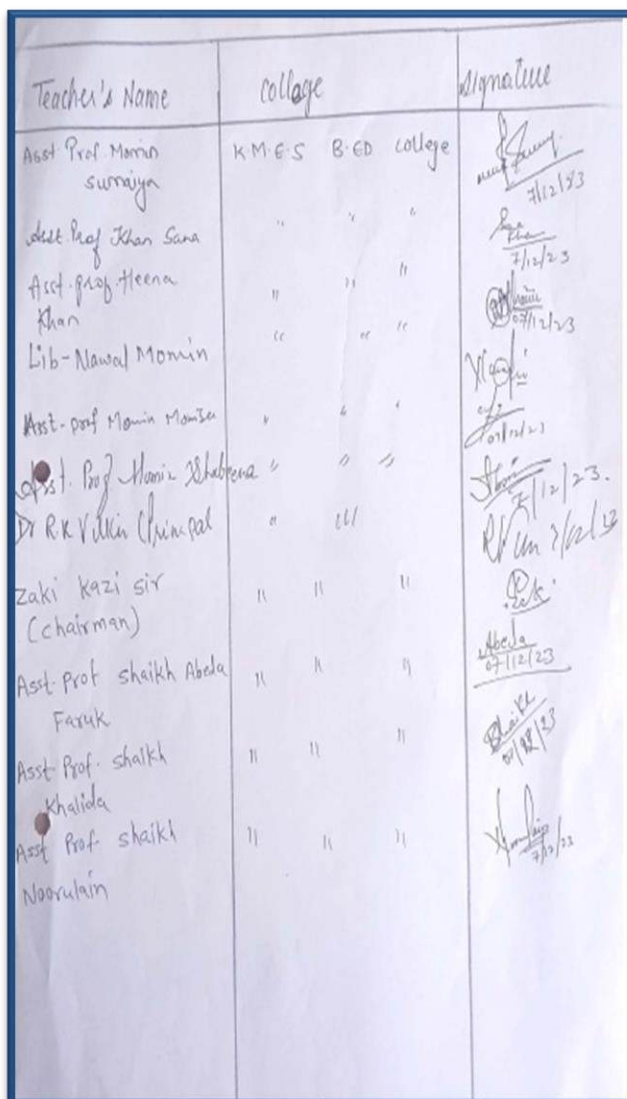 Teacher's Name college signature
Asst. Prof. Momin K.M.E.S B.ED college
Sumaiya
7/12/23
Asst. Prof Khan Sana " " "
Khan
7/12/23
Asst. prof. Heena " " "
Khan
07/12/23
Lib- Nawal Momin " " "
Asst- prof Momin " " "
07/12/23
Asst. Prof Momin Shabeena " " "
7/12/23.
Dr R.K (Principal "
Zaki Kazi sir " " "
(chairman)
Asst. Prof shaikh Abeda " " " Abeda
Faruk 07/12/23
Asst Prof. shaikh " " " Shaikh
Khalida
Asst Prof shaikh " " "
Noorulain 7/12/23